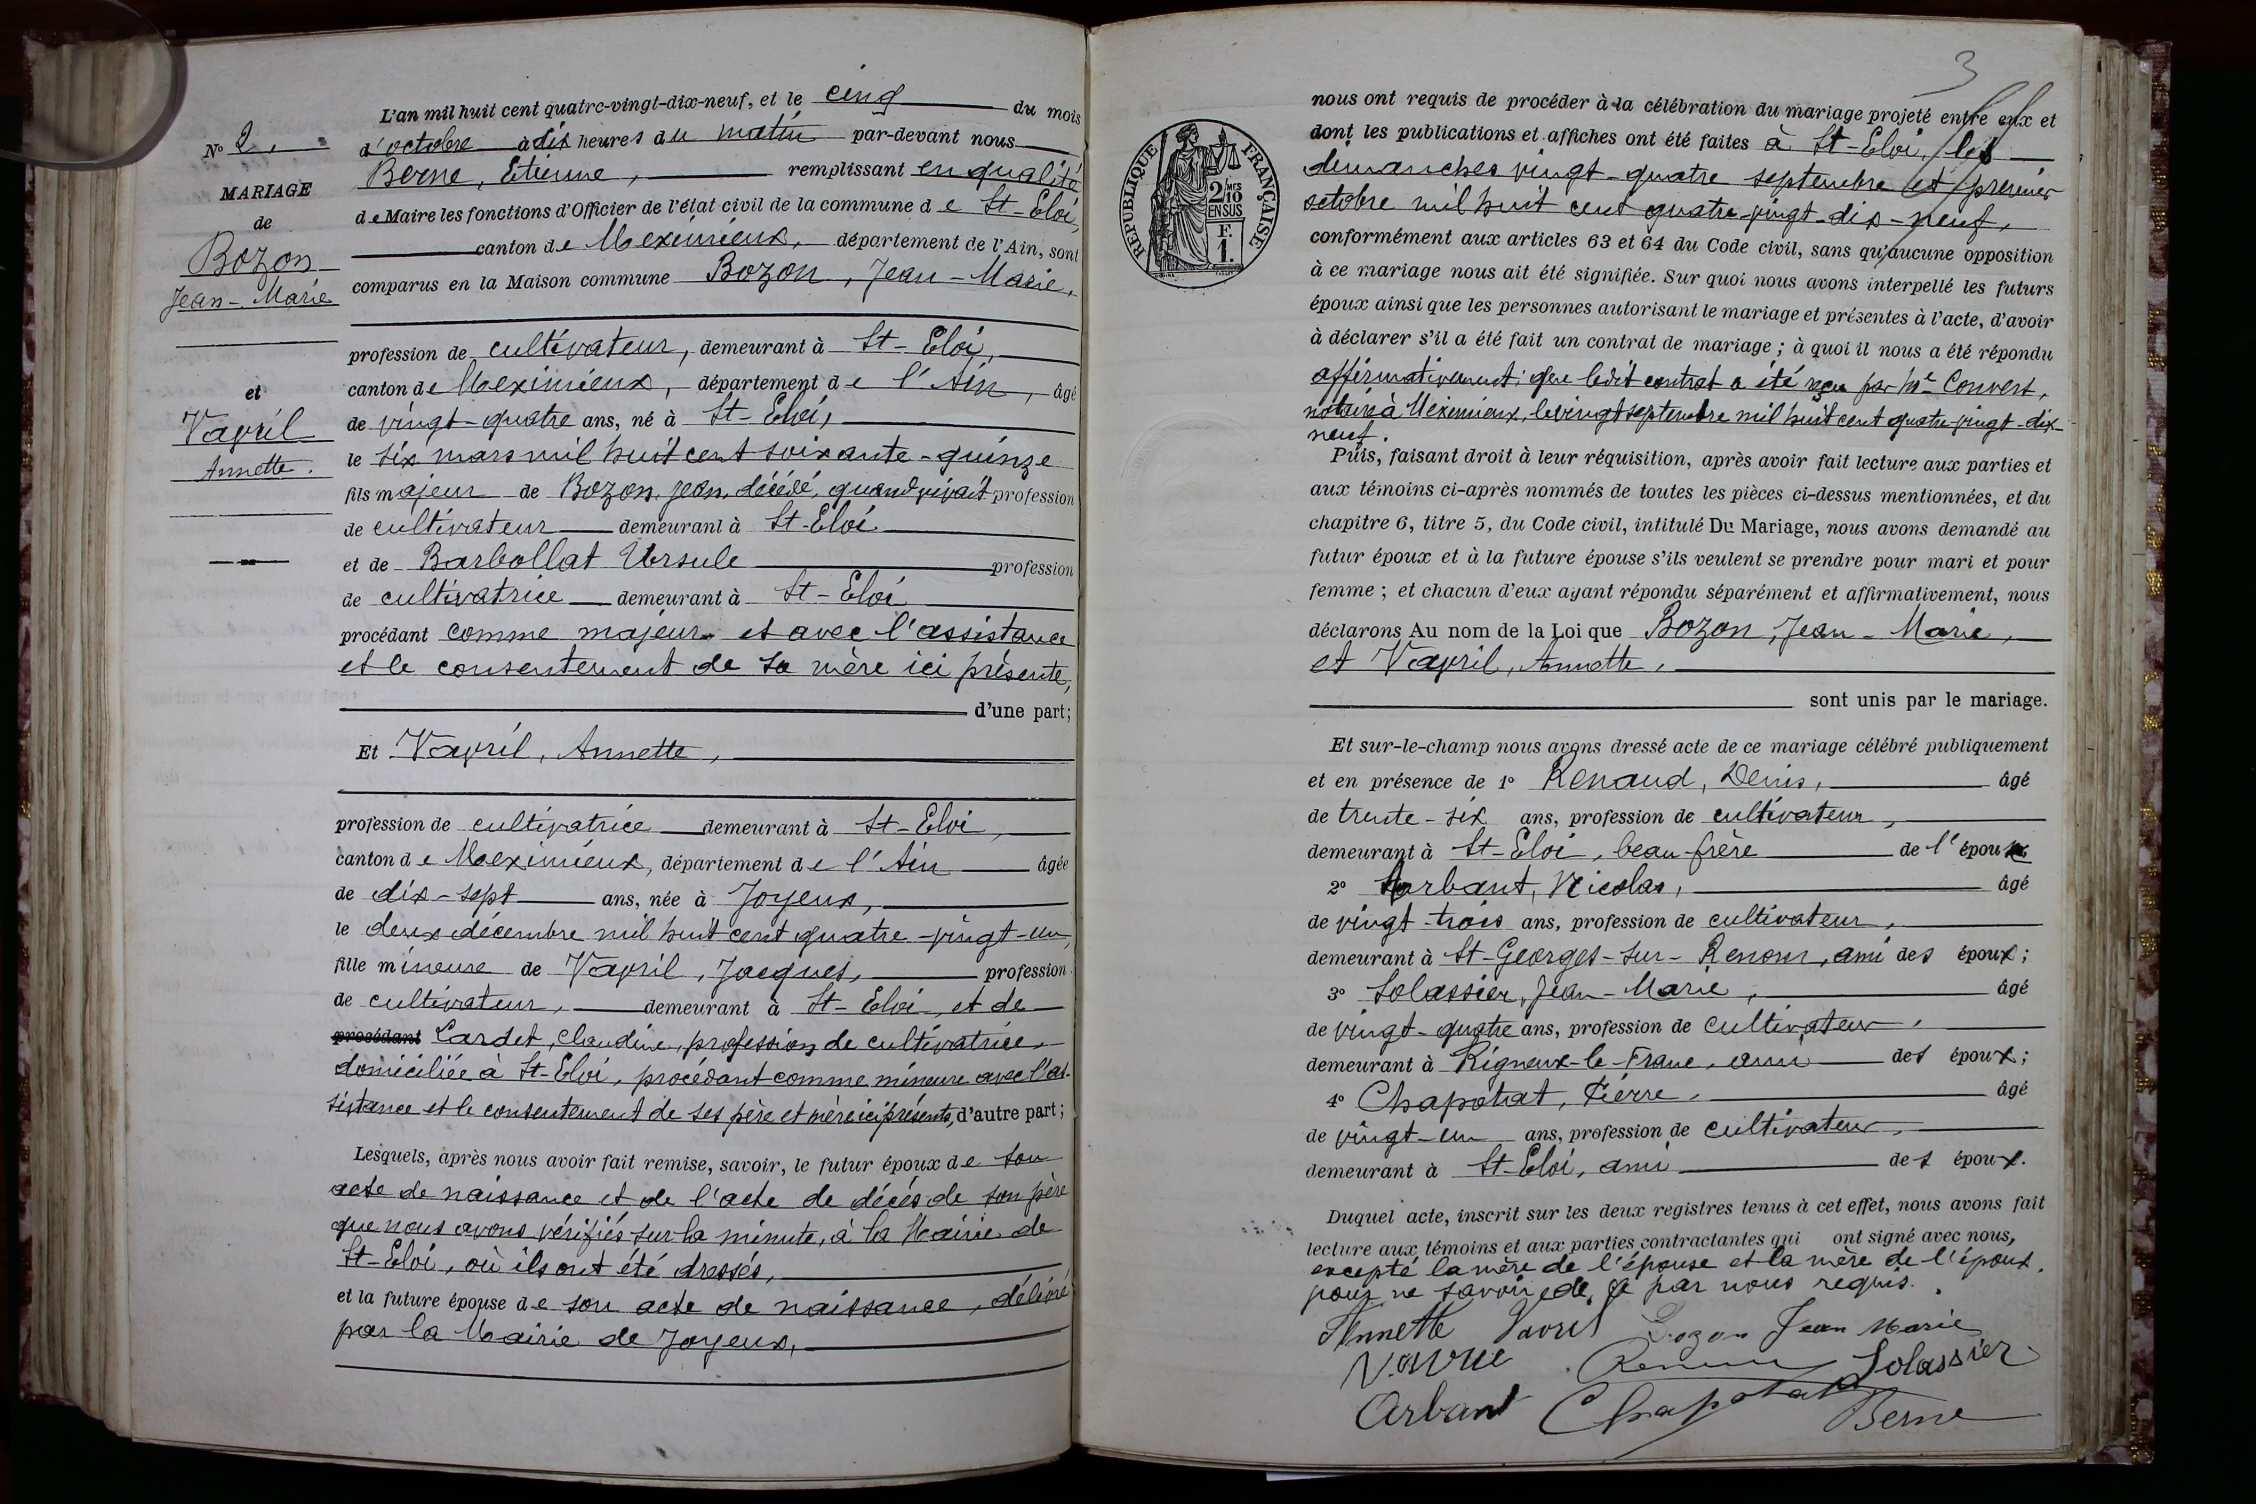 L'an mil huit cent quatre-vingt-dix-neuf, et le cinq du mois
d'octobre à dix heures du matin par-devant nous
Berne, Etienne, remplissant en qualité
de Maire les fonctions d'Officier de l'état civil de la commune de St-Eloi,
canton de Meximieux, département de l'Ain, sont
comparus en la Maison commune Bozon, Jean-Marie,
profession de cultivateur, demeurant à St-Eloi,
canton de Meximieux, département de l'Ain, âgé
de vingt-quatre ans, né à St-Eloi,
le six mars mil huit cent soixante-quinze
fils majeur de Bozon, Jean, décédé, quand vivait profession
de cultivateur demeurant à St-Eloi
et de Barbollat Ursule profession
de cultivatrice demeurant à St-Eloi
procédant comme majeur et avec l'assistance
et le consentement de sa mère ici présente,
d'une part;
Et Vavril, Annette,
profession de cultivatrice demeurant à St-Eloi,
canton de Meximieux, département de l'Ain âgée
de dix-sept ans, née à Joyeux,
le deux décembre mil huit cent quatre-vingt-un,
fille mineure de Vavril, Jacques, profession
de cultivateur, demeurant à St-Eloi, et de
procédant Cardet, Claudine, profession de cultivatrice,
domiciliée à St-Eloi, procédant comme mineure avec l'as-
sistance et le consentement de ses père et mère ici présents, d'autre part;
Lesquels, après nous avoir fait remise, savoir, le futur époux de son
acte de naissance et de l'acte de décès de son père
que nous avons vérifiés sur la minute, à la Mairie de
St-Eloi, où ils ont été dressés,
et la future épouse de son acte de naissance, délivré
par la Mairie de Joyeux,
No 2.
MARIAGE
de
Bozon
Jean-Marie
et
Vavril
Annette.
3
RÉPUBLIQUE FRANÇAISE
2 MES
10
EN SUS
F.
1.
nous ont requis de procéder à la célébration du mariage projeté entre eux et
dont les publications et affiches ont été faites à St-Eloi, les
dimanches vingt-quatre septembre et premier
octobre mil huit cent quatre-vingt-dix-neuf,
conformément aux articles 63 et 64 du Code civil, sans qu'aucune opposition
à ce mariage nous ait été signifiée. Sur quoi nous avons interpellé les futurs
époux ainsi que les personnes autorisant le mariage et présentes à l'acte, d'avoir
à déclarer s'il a été fait un contrat de mariage; à quoi il nous a été répondu
affirmativement; que ledit contrat a été reçu par Me Convert,
notaire à Meximieux, le vingt septembre mil huit cent quatre-vingt-dix-
neuf.
Puis, faisant droit à leur réquisition, après avoir fait lecture aux parties et
aux témoins ci-après nommés de toutes les pièces ci-dessus mentionnées, et du
chapitre 6, titre 5, du Code civil, intitulé Du Mariage, nous avons demandé au
futur époux et à la future épouse s'ils veulent se prendre pour mari et pour
femme; et chacun d'eux ayant répondu séparément et affirmativement, nous
déclarons Au nom de la Loi que Bozon, Jean-Marie,
et Vavril, Annette,
sont unis par le mariage.
Et sur-le-champ nous avons dressé acte de ce mariage célébré publiquement
et en présence de 1o Renaud, Denis, âgé
de trente-six ans, profession de cultivateur,
demeurant à St-Eloi, beau-frère de l'époux
2o Arbant, Nicolas, âgé
de vingt-trois ans, profession de cultivateur,
demeurant à St-Georges-sur-Renom, ami des époux;
3o Solassier, Jean-Marie, âgé
de vingt-quatre ans, profession de cultivateur,
demeurant à Rigneux-le-Franc, ami des époux;
4o Chapotat, Pierre, âgé
de vingt-un ans, profession de cultivateur,
demeurant à St-Eloi, ami des époux.
Duquel acte, inscrit sur les deux registres tenus à cet effet, nous avons fait
lecture aux témoins et aux parties contractantes qui ont signé avec nous,
excepté la mère de l'épouse et la mère de l'époux,
pour ne savoir, de ce par nous requis.
Annette Vavril Bozon Jean Marie
Vavril Renaud Solassier
Arbant Chapotat
Berne